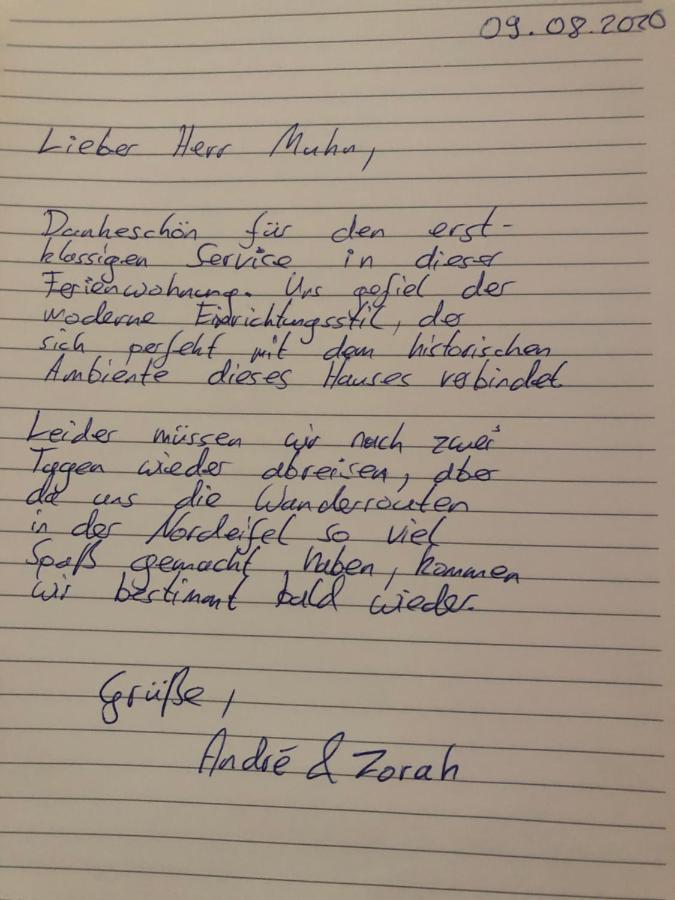 09.08.2020
Lieber Herr Muhn,
Dankeschön für den erst-
klassigen Service in dieser
Ferienwohnung. Uns gefiel der
moderne Einrichtungsstil, der
sich perfekt mit dem historischen
Ambiente dieses Hauses verbindet.
Leider müssen wir nach zwei
Tagen wieder abreisen, aber
da uns die Wanderrouten
in der Nordeifel so viel
Spaß gemacht haben, kommen
wir bestimmt bald wieder.
Grüße,
André & Zorah